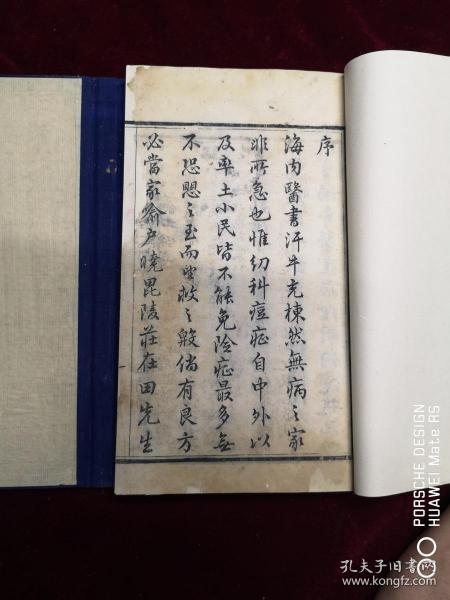 序
海内醫書汗牛充棟然無病之家
非所急也惟幼科痘症自中外以
及率土小民皆不能免險症最多無
不恐思之至而望救之殷倘有良方
必當家喻户曉毘陵莊在田先生
PORSCHE DESIGN
HUAWEI Mate RS
孔夫子旧书网
www.kongfz.com